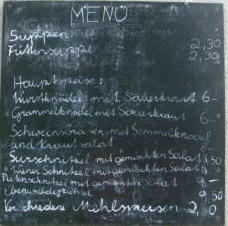 MENÜ
Suppen:
suppe 2,30
2,30
Hauptspeise:
Wurstknödel mit Sauerkraut 6-
Grammelknödel mit Sauerkraut 6-
Schweinsbraten mit Semmelknödel
und Krautsalat 8-
Surschnitzel mit gemischten Salat 8,50
Wiener Schnitzel mit gemischten Salat 8
mit gemischten Salat 9-
9,50
Verschiedene Mehlspeisen 2,0